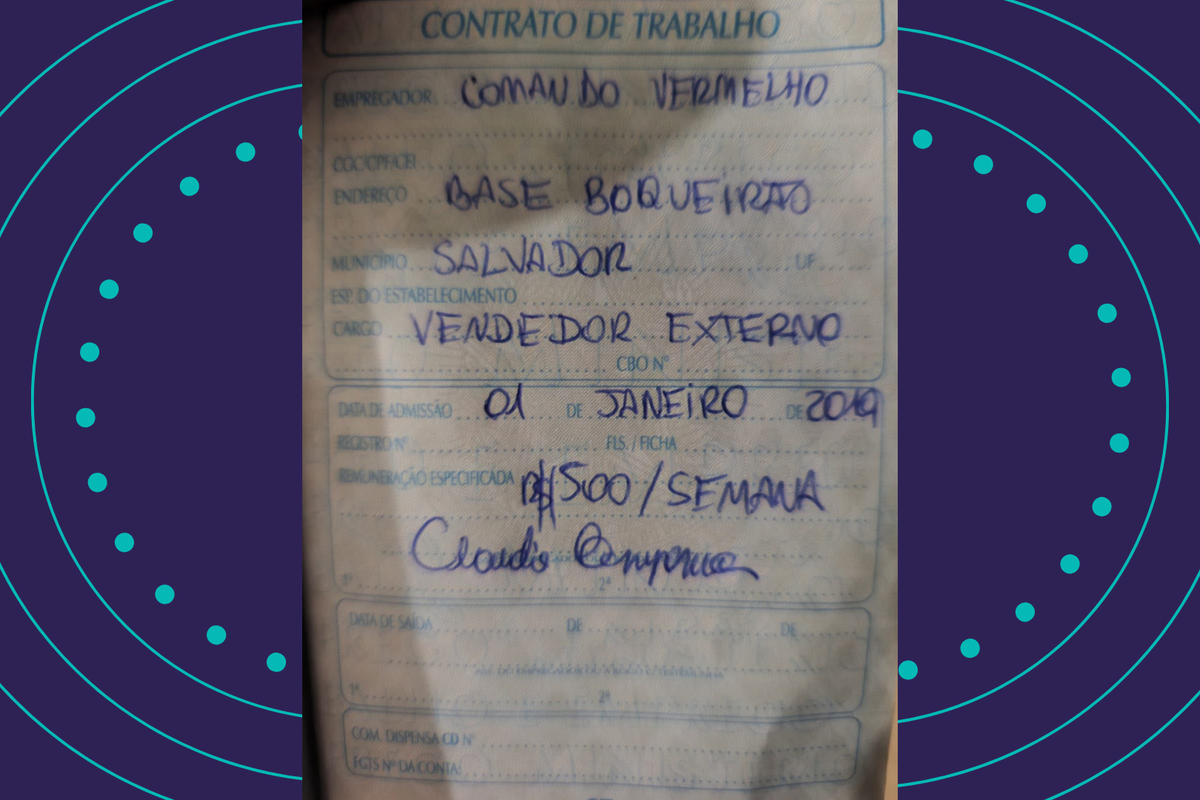 CONTRATO DE TRABALHO
EMPREGADOR COMANDO VERMELHO
CGC/CPF/CEI
ENDEREÇO BASE BOQUEIRÃO
MUNICÍPIO SALVADOR UF
ESP. DO ESTABELECIMENTO
CARGO VENDEDOR EXTERNO
CBO Nº
DATA DE ADMISSÃO 01 DE JANEIRO DE 2019
REGISTRO Nº FLS. / FICHA
REMUNERAÇÃO ESPECIFICADA R$ 500 / SEMANA
Claudio
1º 2ª
DATA DE SAÍDA DE DE
1ª 2ª
COM. DISPENSA CD Nº
FGTS Nº DA CONTA